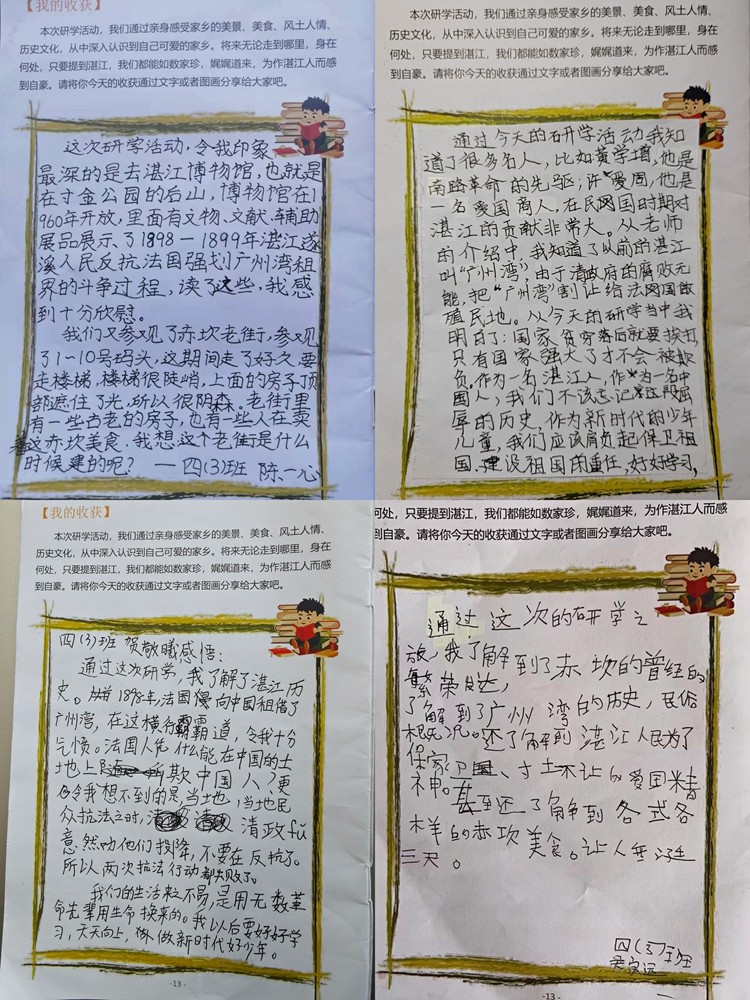 【我的收获】
本次研学活动，我们通过亲身感受家乡的美景、美食、风土人情、
历史文化，从中深入认识到自己可爱的家乡。将来无论走到哪里，身在
何处，只要提到湛江，我们都能如数家珍，娓娓道来，为作湛江人而感
到自豪。请将你今天的收获通过文字或者图画分享给大家吧。
这次研学活动，令我印象
最深的是去湛江博物馆，也就是
在寸金公园的后山，博物馆在1
960年开放，里面有文物、文献、辅助
展品展示、了1898－1899年湛江遂
溪人民反抗法国强划广州湾租
界的斗争过程，读了这些，我感
到十分欣慰。
我们又参观了赤坎老街，参观
了1~10号码头，这期间走了好久，要
走楼梯，楼梯很陡峭，上面的房子顶
部遮住了光，所以很阴森。老街里
有一些古老的房子，也有一些人在卖
着这赤坎美食。我想这个老街是什么
时候建的呢？ —四(3)班 陈一心
本次研学活动，我们通过亲身感受家乡的美景、美食、风土人情、
历史文化，从中深入认识到自己可爱的家乡。将来无论走到哪里，身在
何处，只要提到湛江，我们都能如数家珍，娓娓道来，为作湛江人而感
到自豪。请将你今天的收获通过文字或者图画分享给大家吧。
通过今天的研学活动我知
道了很多名人，比如黄学增，他是
南路革命的先驱；许爱周，他是
一名爱国商人，在民国时期对
湛江的贡献非常大。从老师
的介绍中，我知道了以前的湛江
叫“广州湾”，由于清政府的腐败无
能，把“广州湾”割让给法国做
殖民地。从今天的研学当中我
明白了：国家贫穷落后就要挨打
只有国家强大了才不会被欺
负。作为一名湛江人，作为一名中
国人，我们不该忘记那段屈
辱的历史，作为新时代的少年
儿童，我们应该肩负起保卫祖
国、建设祖国的重任，好好学习，
【我的收获】
本次研学活动，我们通过亲身感受家乡的美景、美食、风土人情、
历史文化，从中深入认识到自己可爱的家乡。将来无论走到哪里，身在
何处，只要提到湛江，我们都能如数家珍，娓娓道来，为作湛江人而感
到自豪。请将你今天的收获通过文字或者图画分享给大家吧。
四(3)班 贺敬曦感悟：
通过这次研学，我了解了湛江历
史。1898年，法国向中国租借了
广州湾，在这横行霸道，令我十分
气愤。法国人凭什么能在中国的土
地上欺中国人？更
令我想不到的是，当地，当地民
众抗法之时，清政fǔ
意然叫他们投降，不要在反抗了。
所以两次抗法行动都失败了。
我们的生活来之不易，是用无数革
命先辈用生命换来的。我以后要好好学
习，天天向上，做新时代好少年。
-13-
何处，只要提到湛江，我们都能如数家珍，娓娓道来，为作湛江人而感
到自豪。请将你今天的收获通过文字或者图画分享给大家吧。
通过这次的研学之
旅，我了解到了赤坎的曾经的
繁荣发达，
了解到了广州湾的历史，民俗
概况。还了解到湛江人民为了
保家卫国、寸土不让的爱国精
神。甚至还了解到各式各
样的赤坎美食。让人垂涎
三尺。
四(3)班
-13-